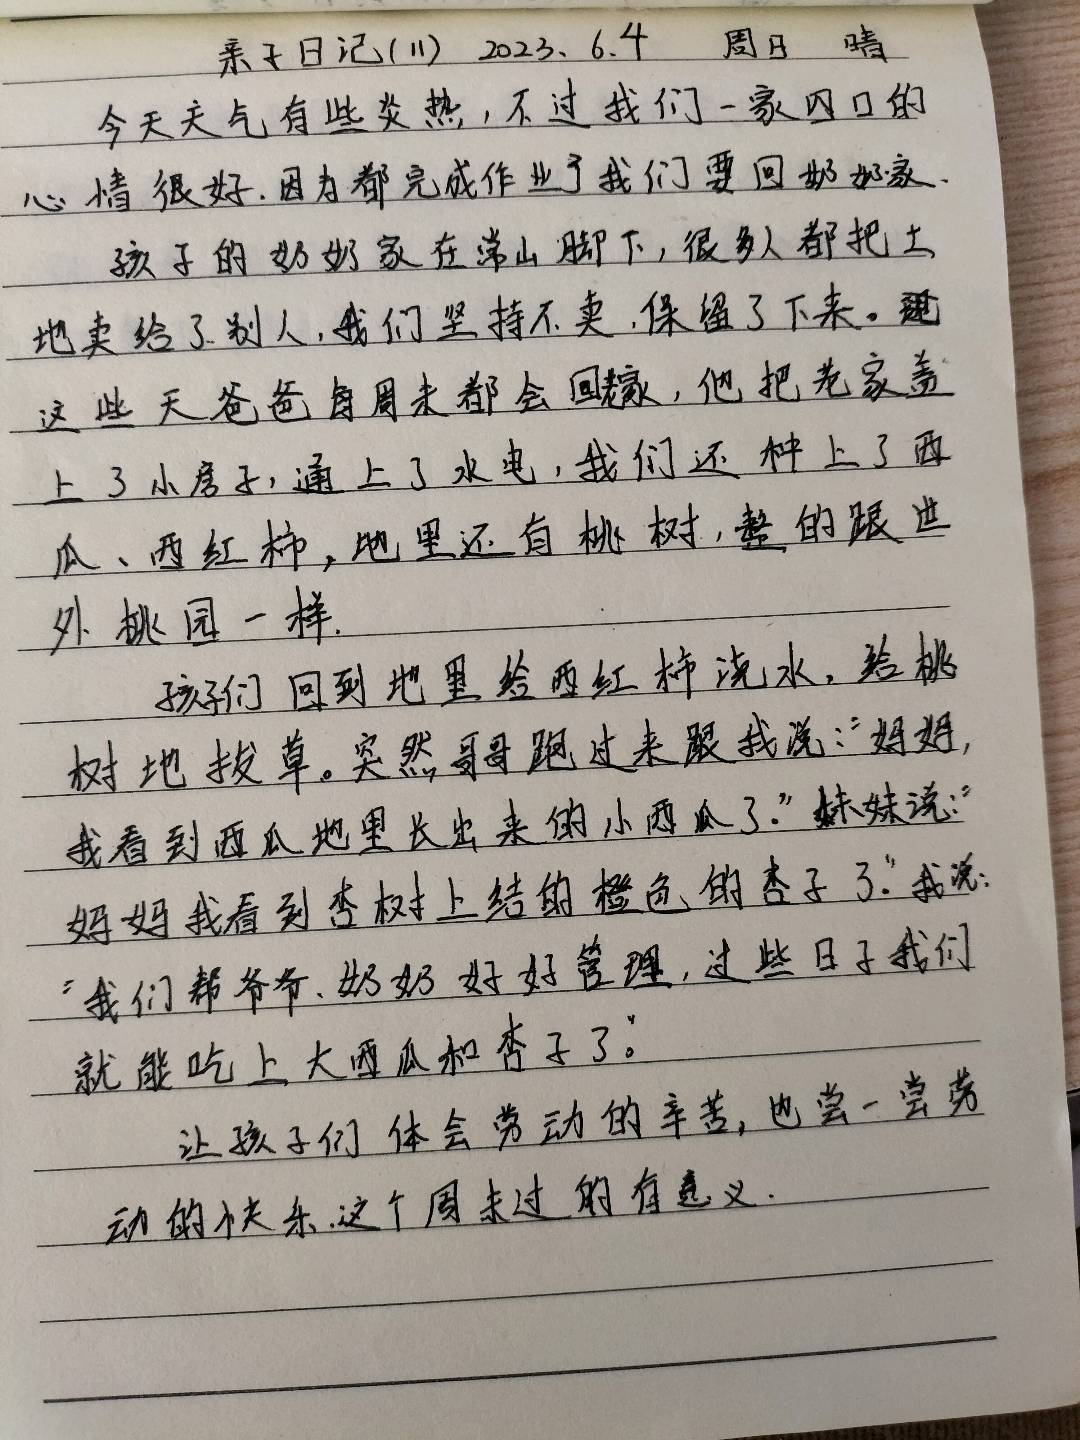 亲子日记(11) 2023.6.4 周日 晴
今天天气有些炎热,不过我们一家四口的
心情很好.因为都完成作业了我们要回奶奶家.
孩子的奶奶家在常山脚下,很多人都把土
地卖给了别人,我们坚持不卖,保留了下来。
这些天爸爸每周末都会回老家,他把老家盖
上了小房子,通上了水电,我们还种上了西
瓜、西红柿,地里还有桃树,整的跟世
外桃园一样.
孩子们回到地里给西红柿浇水,给桃
树地拔草。突然哥哥跑过来跟我说:“妈妈,
我看到西瓜地里长出来的小西瓜了.”妹妹说:“
妈妈我看到杏树上结的橙色的杏子了.”我说:
“我们帮爷爷、奶奶好好管理,过些日子我们
就能吃上大西瓜和杏子了。”
让孩子们体会劳动的辛苦,也尝一尝劳
动的快乐.这个周末过的有意义.